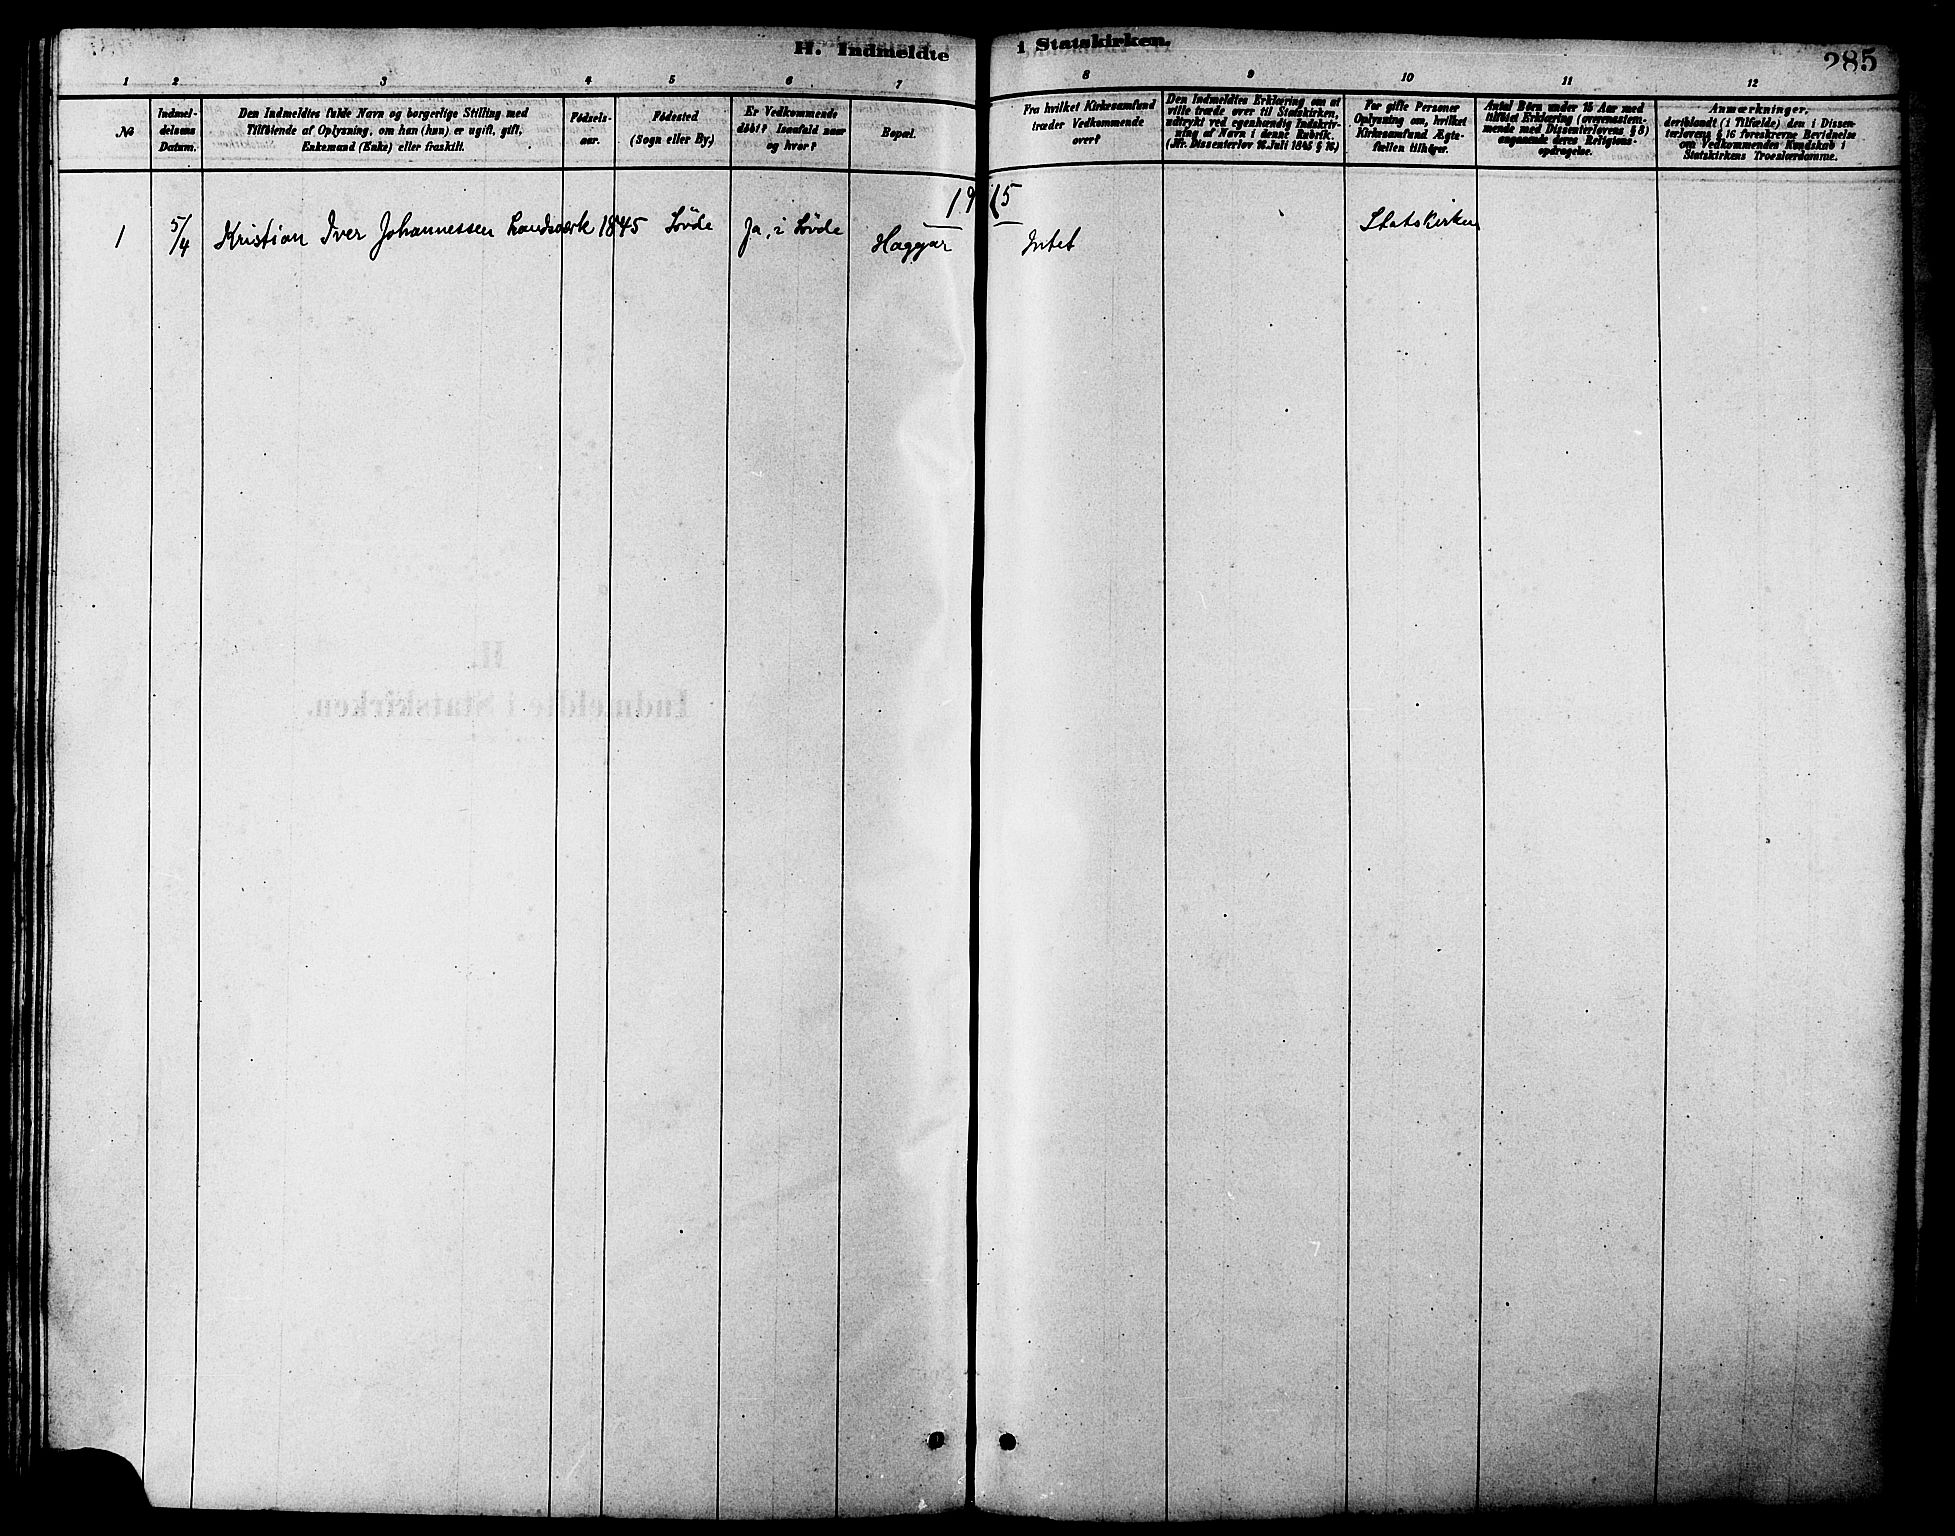 H. Indmeldte i Statskirken.
285
1 2 3 4 5 6 7 8 9 10 11 12
№
Indmel-
delsens
Datum.
Den Indmeldtes fulde Navn og borgerlige Stilling med
Tilføiende af Oplysning, om han (hun) er ugift, gift,
Enkemand (Enke) eller fraskilt.
Fødsels-
aar.
Fødested
(Sogn eller By.)
Er Vedkommende
døbt? Isaafald naar
og hvor?
Bopæl.
Fra hvilket Kirkesamfund
træder Vedkommende
over?
Den Indmeldtes Erklæring om at
ville træde over til Statskirken,
udtrykt ved egenhændig Indskriv-
ning af Navn i denne Rubrik.
(Kfr. Dissenterlov 16. Juli 1845 § 16.)
For gifte Personer
Oplysning om, hvilket
Kirkesamfund Ægte-
fællen tilhører.
Antal Børn under 15 Aar med
tilføiet Erklæring (overensstem-
mende med Dissenterlovens § 8)
angaaende deres Religions-
opdragelse.
Anmærkninger,
deriblandt (i Tilfælde) den i Dissen-
terlovens § 16 foreskrevne Bevidnelse
om Vedkommendes Kundskab i
Statskirkens Troeslærdomme.
1915
1 5/4 Kristian Iver Johannessen Landsverk 1845 Løvde Ja, i Løvde Haggar Intet Statskirken